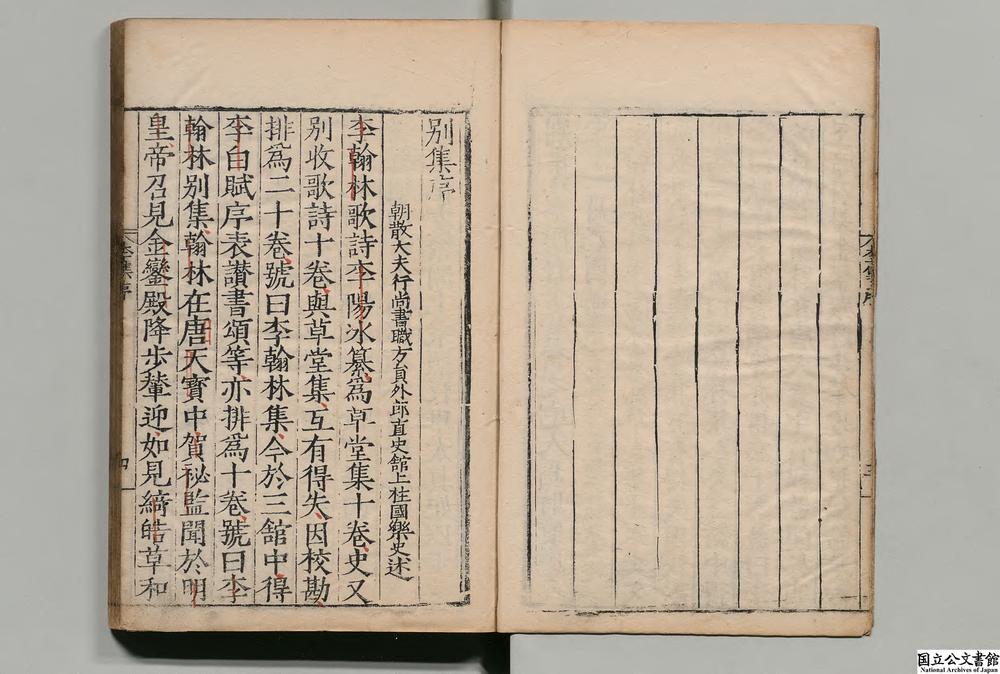 李集序
三
別集序
朝散大夫行尚書職方員外郎直史舘上柱國樂史述
李翰林歌詩李陽冰纂爲草堂集十卷史又
別收歌詩十卷與草堂集互有得失因校勘
排爲二十卷號曰李翰林集今於三舘中得
李白賦序表讃書頌等亦排爲十卷號曰李
翰林別集翰林在唐天寳中賀秘監聞於明
皇帝召見金鑾殿降步輦迎如見綺皓草和
李集序
四
国立公文書館
National Archives of Japan